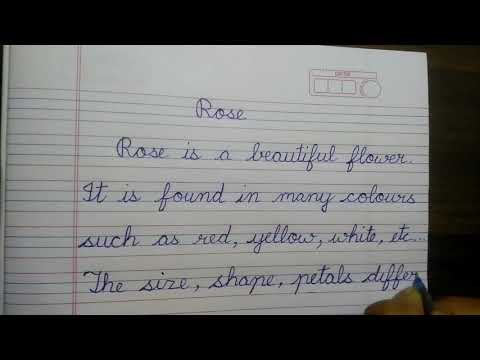 Rose
Rose is a beautiful flower.
It is found in many colours
such as red, yellow, white, etc...
The size, shape, petals differ